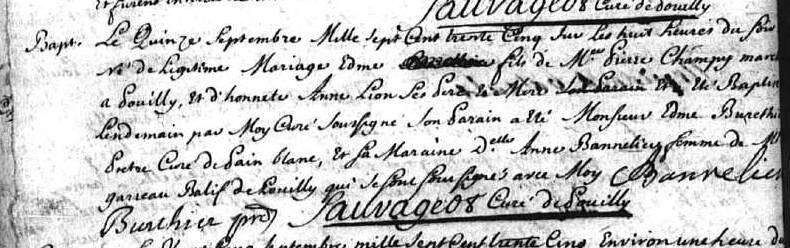 Sauvageot Curé de pouilly
Bapt. Le Quinze Septembre Mille Sept Cent trente Cinq Sur les huit heures du Soir
né de légitime Mariage Edme fils de Mre Pierre Champy
a Pouilly, et d'honnete Anne Lion Ses Pere et Mere et a été Baptisé
Lendemain par Moy Curé Soussigné Son parain a été Monsieur Edme
Pretre Curé de Pain blanc, et Sa Maraine Delle Anne Bannelier femme de Mr
garreau Balif de Pouilly qui Se Sont Sous Signés avec Moy Bannelier
Burthier Sauvageot Curé de Pouilly
Cinq Septembre mille Sept Cent trente Cinq Environ une heure du